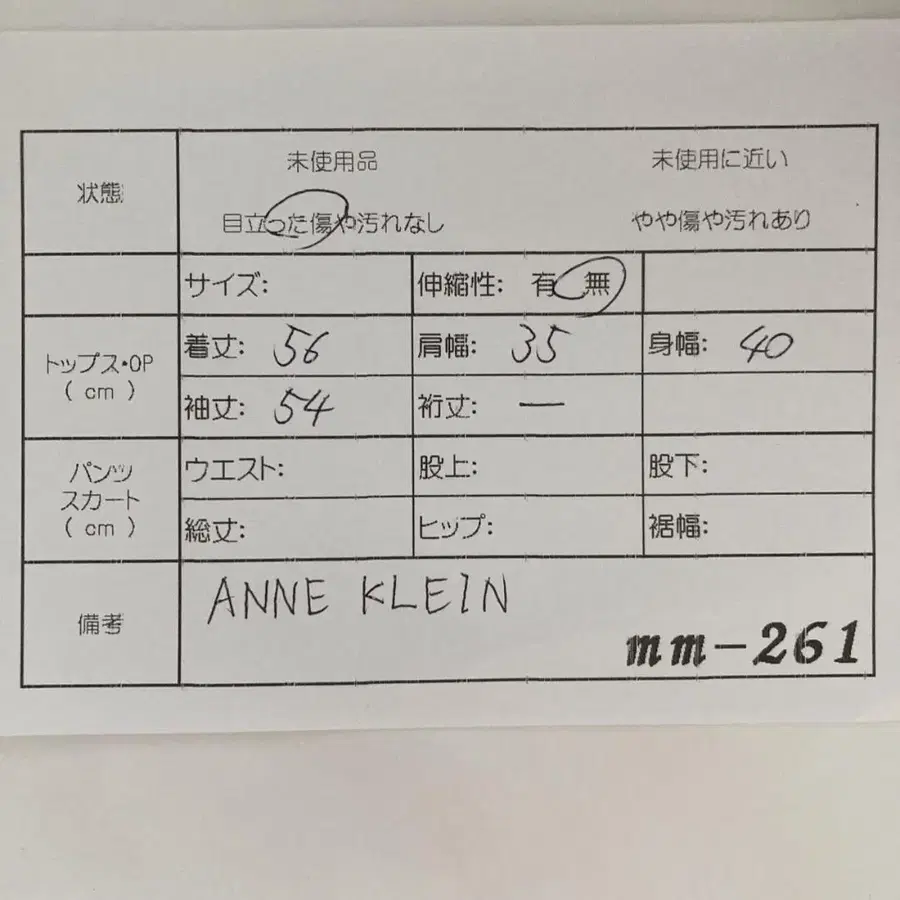 状態
未使用品 未使用に近い
目立った傷や汚れなし やや傷や汚れあり
サイズ: 伸縮性: 有 無
トップス・OP
( cm )
着丈: 56 肩幅: 35 身幅: 40
袖丈: 54 裄丈: ー
パンツ
スカート
( cm )
ウエスト: 股上: 股下:
総丈: ヒップ: 裾幅:
備考
ANNE KLEIN
mm-261